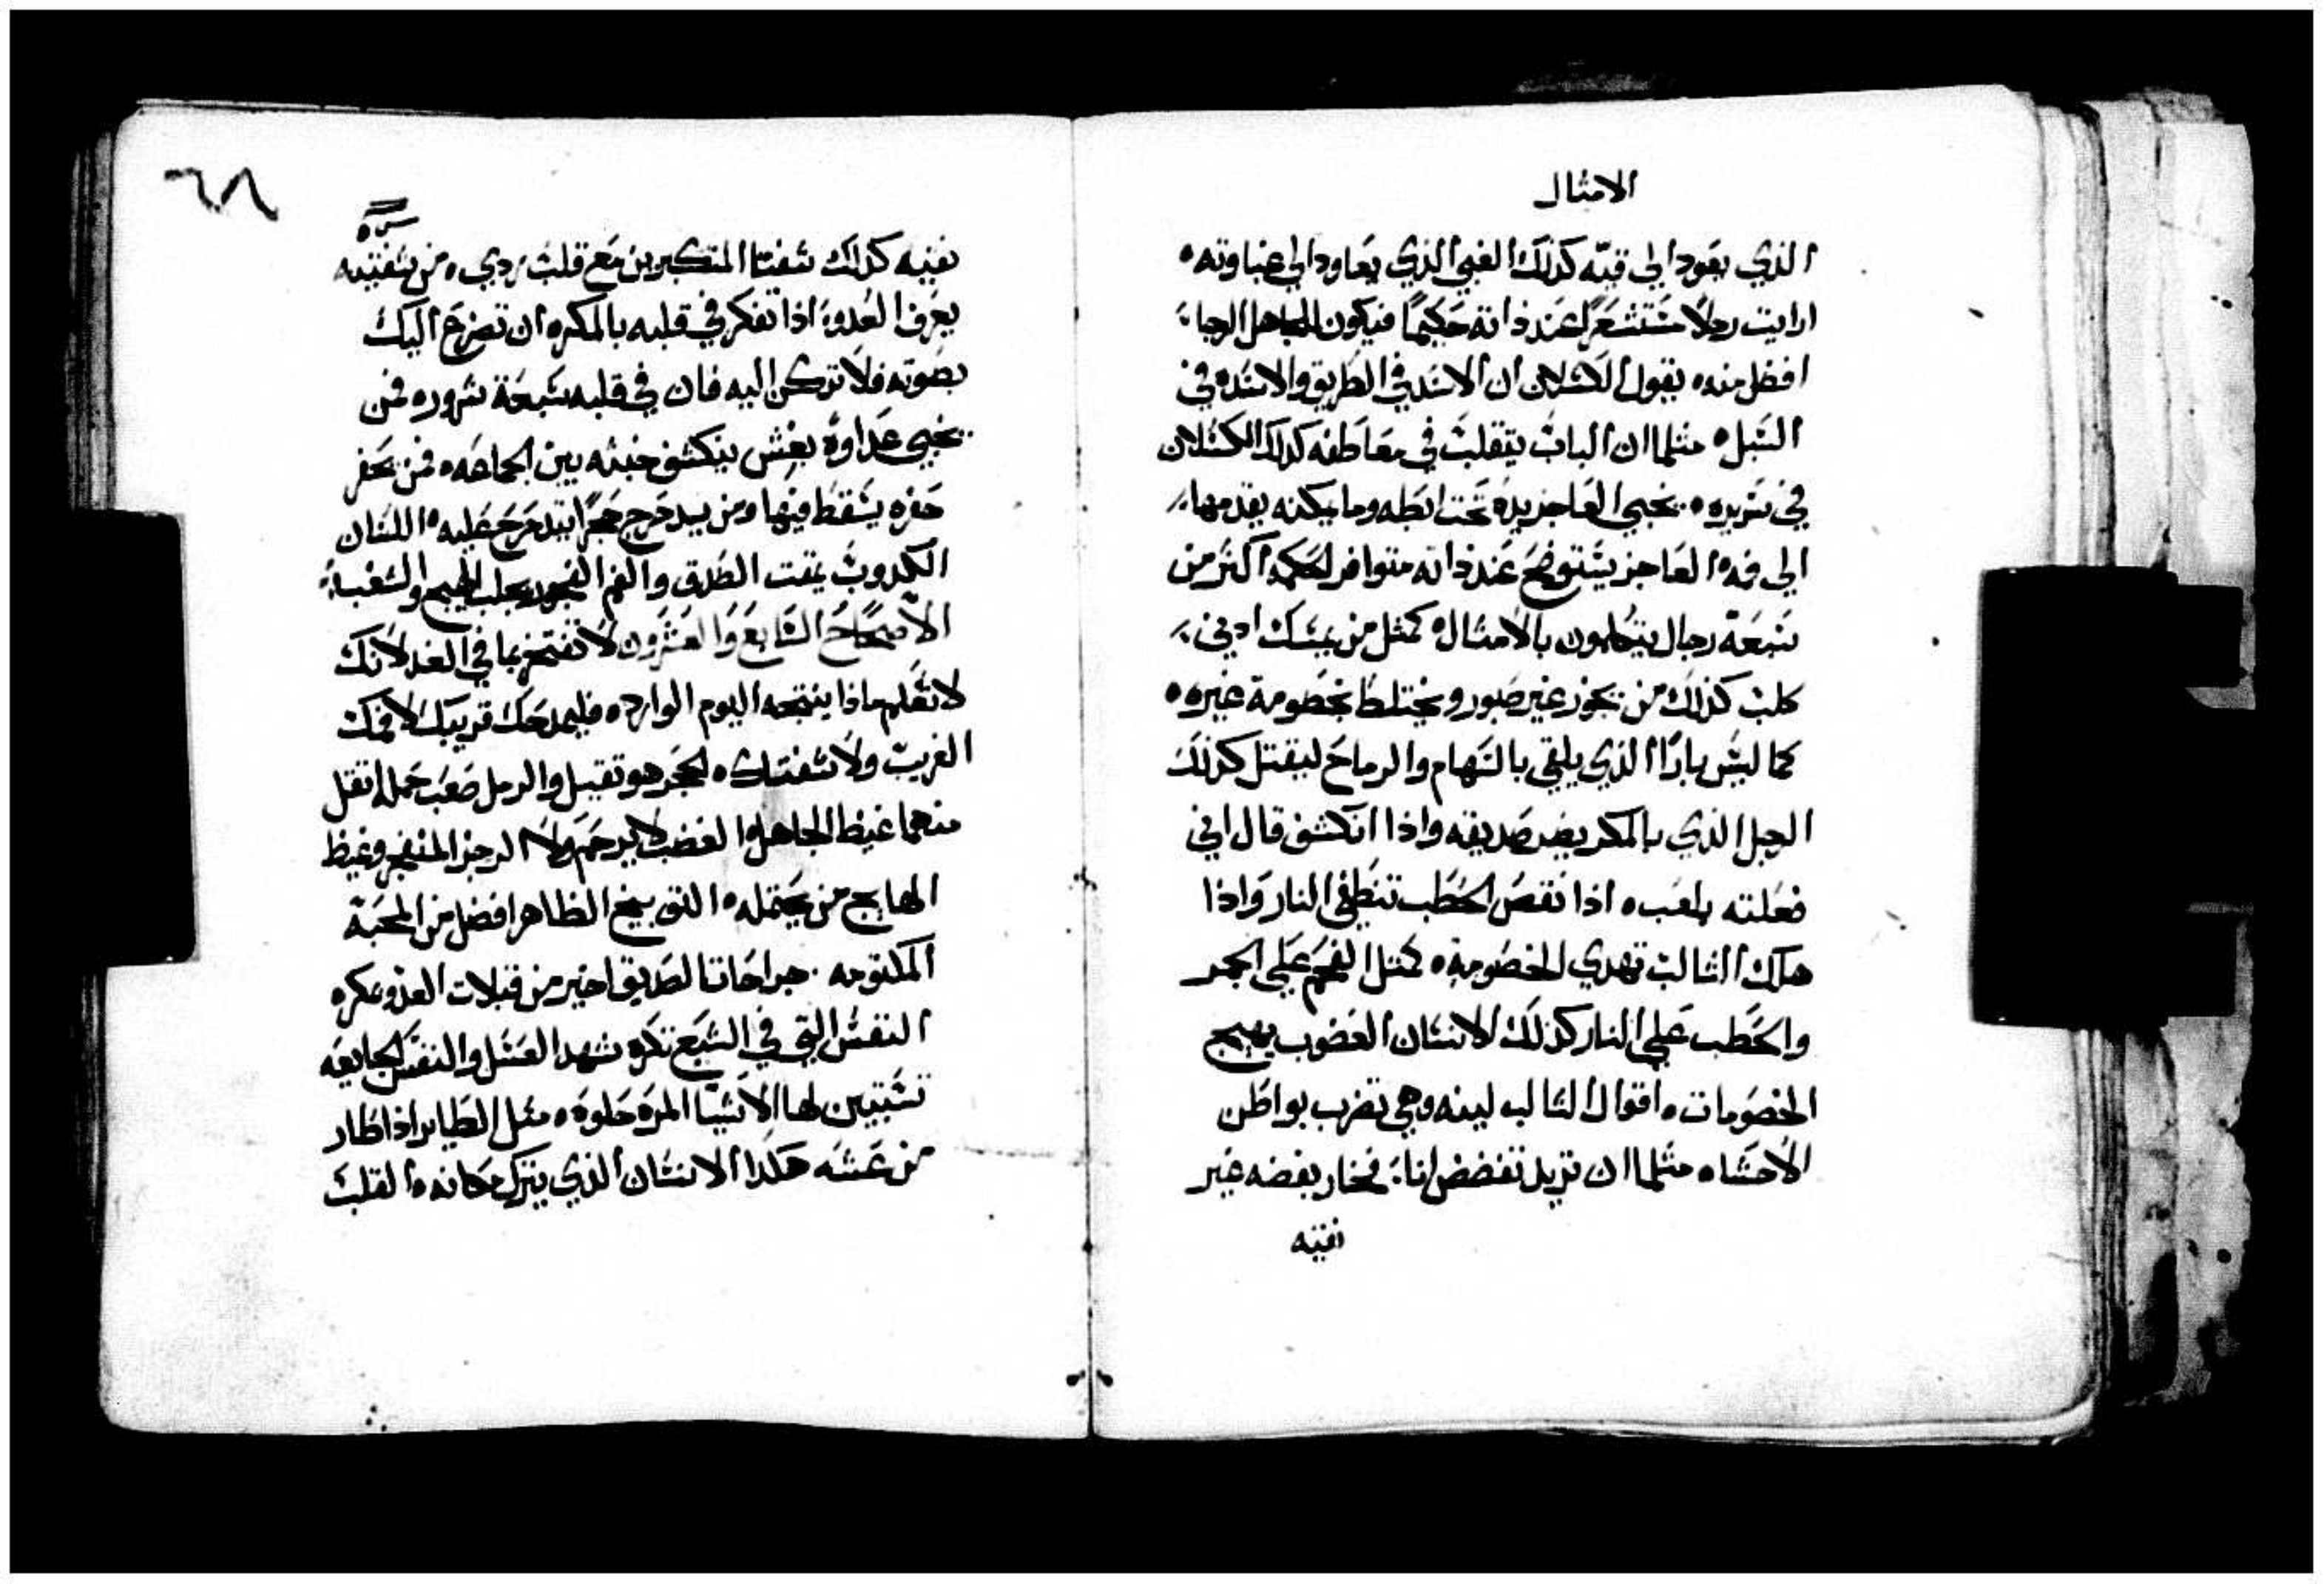 الامثال
الذي يعود الى قيّه كذلك الغبي الذي يعاود الى غباوته ٥
ارايت رجلًا مستشعرًا عند ذاته حكيمًا فيكون الجاهل الرجاء
افضل منه ٥ يقول الكسلان ان الاسد في الطريق والاسده في
السبل ٥ مثلما ان الباب يتقلب في معاطفه كذلك الكسلان
في سريره ٥ يخبي العاجز يده تحت ابطه وما يمكنه يقدمها
الى فمه ٥ العاجز يستوضح عند ذاته متوافر الحكمه اكثر من
سبعة رجال يتكلمون بالامثال ٥ كمثل من يمسك ادني
كلب كذلك من يجوز غير صبور ويختلط بخصومة غيره ٥
كما ليس بارًا الذي يلقي بالسهام والرماح ليقتل كذلك
الرجل الذي بالمكر يضر صديقه واذا انكشف قال اني
فعلته بلعب ٥ اذا نقص الحطب تنطفي النار واذا
هلك الثالب تهدي الخصومة ٥ كمثل الفحم على الجمر
والحطب على النار كذلك الانسان الغضوب يهيج
الخصومات ٥ اقوال الثالب لينه وهي تضرب بواطن
الاحشاء ٥ مثلما ان تريد تفضض اناء فخار بفضه غير
نقيه
٦٨
نقيه كذلك شفتا المتكبرين مع قلب ردي ٥ من شفتيه
يعرف العدو اذا تفكر في قلبه بالمكر ٥ ان تضرع اليك
بصوته فلا تركن اليه فان في قلبه سبعة شرور ٥ فمن
يخبي عداوة بغش ينكشف خبثه بين الجماعه ٥ فمن يحفر
حفره يسقط فيها ومن يدحرج حجرًا يتدحرج عليه ٥ اللسان
الكدوب يمقت الصدق والفم الفجور يجلب الهيج والشغب
الاصحاح السابع والعشرون لا تفتخر بما في الغد لانك
لا تعلم ماذا ينتجه اليوم الوارد ٥ فليمدحك قريبك لا فمك
الغريب ولا شفتاك ٥ الحجر هو تقيل والرمل صعب حمله اتقل
منهما غيظ الجاهل ٥ الغضب لا يرحم ولا الرجز المنفجر وغيظ
الهايج من يحتمله ٥ التوبيخ الظاهر افضل من المحبة
المكتومه . جراحات الصديق اخير من قبلات العدو بمكره
النفس التي في الشبع تكره شهد العسل والنفس الجايعه
تستبين لها الاشيا المره حلوة ٥ مثل الطاير اذا طار
من عشه هكذا الانسان الذي يترك مكانه ٥ القلب